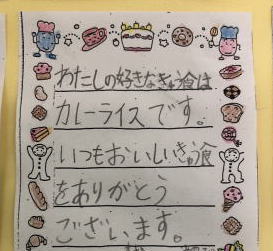 わたしの好きなきゅう食は
カレーライスです。
いつもおいしいきゅう食
をありがとう
ございます。